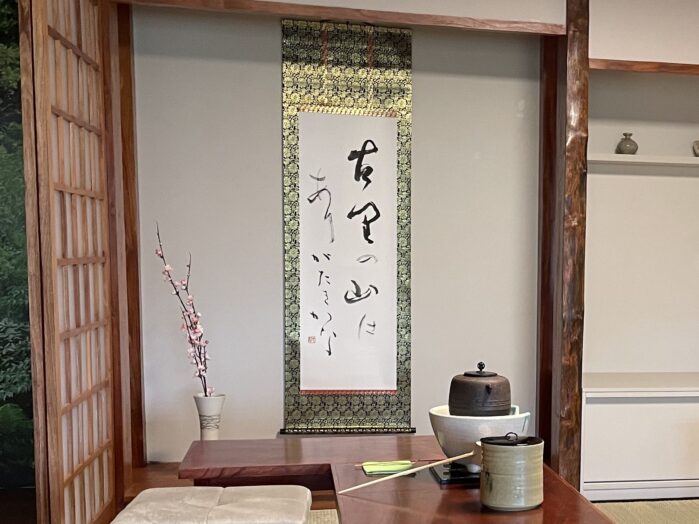 古里の山は
ありがたきかな